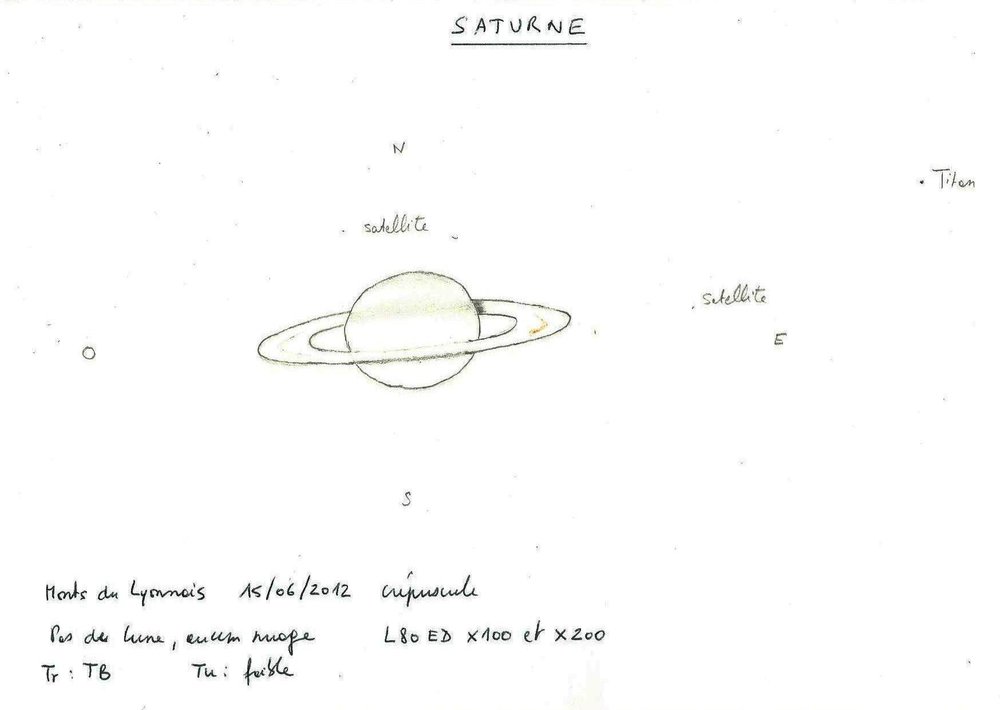 SATURNE
N
Titan
satellite
satellite
O
E
S
Monts du Lyonnais 15/06/2012 crépuscule
Pas de lune, aucun nuage L80 ED x100 et x200
Tr : TB Tu : faible